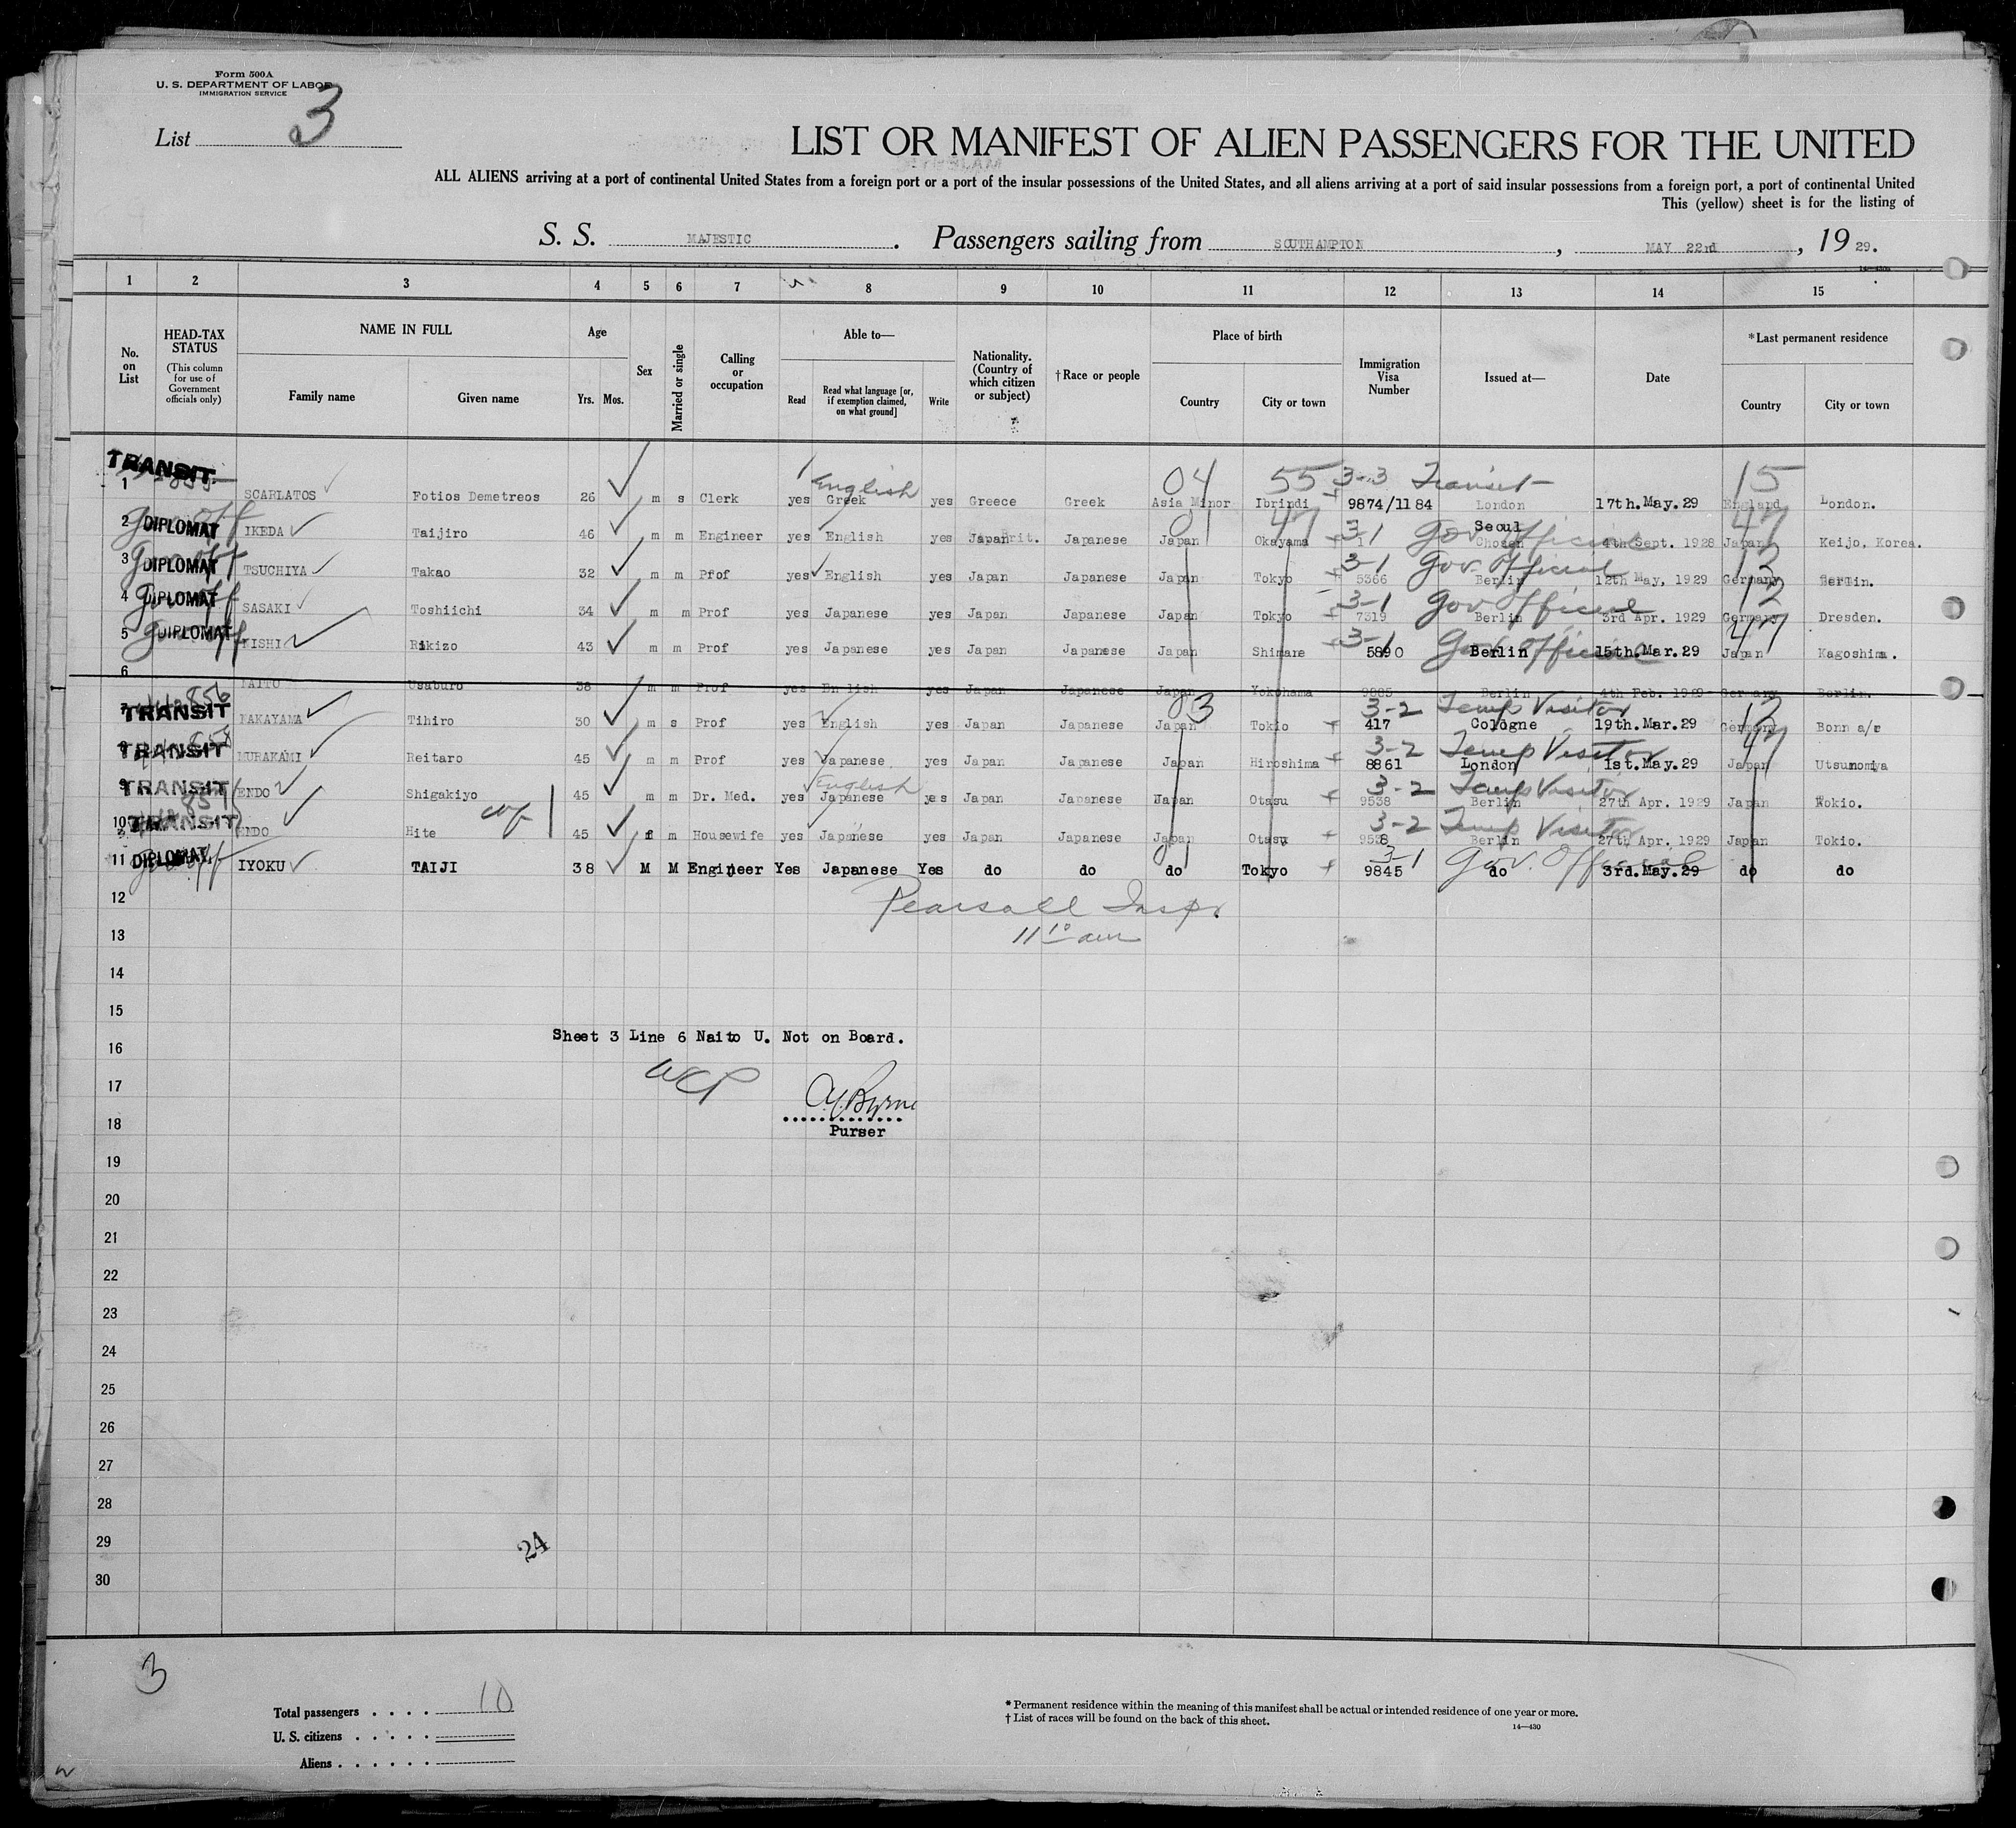 Form 500A
U. S. DEPARTMENT OF LABOR
IMMIGRATION SERVICE
List 3
LIST OR MANIFEST OF ALIEN PASSENGERS FOR THE UNITED
ALL ALIENS arriving at a port of continental United States from a foreign port or a port of the insular possessions of the United States, and all aliens arriving at a port of said insular possessions from a foreign port, a port of continental United
This (yellow) sheet is for the listing of
S. S. MAJESTIC. Passengers sailing from SOUTHAMPTON, MAY 22rd, 19 29.
14-430a
1 2 3 4 5 6 7 8 9 10 11 12 13 14 15
No. on List
HEAD-TAX STATUS
(This column for use of Government officials only)
NAME IN FULL
Family name Given name
Age
Yrs. Mos.
Sex
Married or single
Calling or occupation
Able to—
Read Read what language [or, if exemption claimed, on what ground] Write
Nationality. (Country of which citizen or subject)
†Race or people
Place of birth
Country City or town
Immigration Visa Number
Issued at—
Date
*Last permanent residence
Country City or town
TRANSIT English 04 55 3-3 Transit 15
1 SCARLATOS Fotios Demetreos 26 m s Clerk yes Greek yes Greece Greek Asia Minor Ibrindi 9874/1184 London 17th. May. 29 England London.
Gov off 01 47 3-1 Gov Official Seoul 47
2 DIPLOMAT IKEDA Taijiro 46 m m Engineer yes English yes Japan Japanese Japan Okayama 1 Chosen 4th Sept. 1928 Japan Keijo, Korea.
Gov off 3-1 Gov. Official 12
3 DIPLOMAT TSUCHIYA Takao 32 m m Prof yes English yes Japan Japanese Japan Tokyo 5366 Berlin 12th May, 1929 Germany Berlin.
Gov off 3-1 Gov Official 12
4 DIPLOMAT SASAKI Toshiichi 34 m m Prof yes Japanese yes Japan Japanese Japan Tokyo 7319 Berlin 3rd Apr. 1929 Germany Dresden.
Gov off 3-1 Gov Official 47
5 DIPLOMAT KISHI Rikizo 43 m m Prof yes Japanese yes Japan Japanese Japan Shimane 5890 Berlin 15th. Mar. 29 Japan Kagoshima.
6 NAITO Usaburo 38 m m Prof yes English yes Japan Japanese Japan Yokohama 9885 Berlin 4th Feb. 1929 Germany Berlin.
856 03 3-2 Temp Visitor 12
7 TRANSIT NAKAYAMA Tihiro 30 m s Prof yes English yes Japan Japanese Japan Tokio 417 Cologne 19th. Mar. 29 Germany Bonn a/r
858 3-2 Temp Visitor 47
8 TRANSIT MURAKAMI Reitaro 45 m m Prof yes Japanese yes Japan Japanese Japan Hiroshima 8861 London 1st. May. 29 Japan Utsunomiya
English 3-2 Temp Visitor
9 TRANSIT ENDO Shigakiyo 45 m m Dr. Med. yes Japanese yes Japan Japanese Japan Otasu 9538 Berlin 27th Apr. 1929 Japan Tokio.
857 wf 3-2 Temp Visitor
10 TRANSIT ENDO Hite 45 f m Housewife yes Japanese yes Japan Japanese Japan Otasu 9538 Berlin 27th Apr. 1929 Japan Tokio.
Gov off 01 3-1 Gov. Official
11 DIPLOMAT IYOKU TAIJI 38 M M Engineer Yes Japanese Yes do do do Tokyo 9845 do 3rd. May. 29 do do
12 Pearsall Inspr
13 11 10 am
14
15
16 Sheet 3 Line 6 Naito U. Not on Board.
17 WCP A.Y. Byrne
18 Purser
19
20
21
22
23
24
25
26
27
28
29 24
30
3
Total passengers . . . . 10
U. S. citizens . . . . .
Aliens . . . . . .
* Permanent residence within the meaning of this manifest shall be actual or intended residence of one year or more.
† List of races will be found on the back of this sheet.
14—430